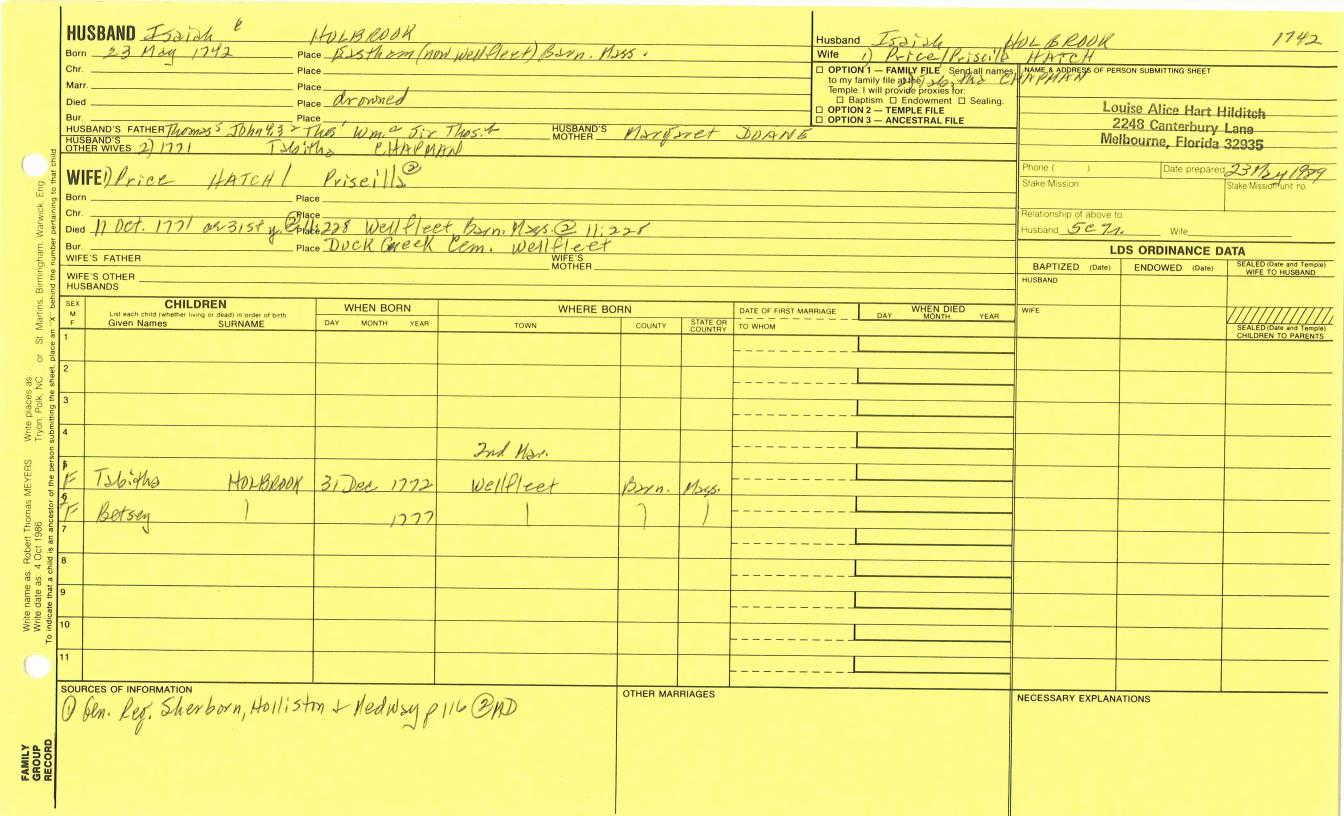 HUSBAND Isaiah 6 HOLBROOK
Born 23 May 1742 Place Eastham (now Wellfleet) Barn. Mass.
Chr. Place
Marr. Place
Died Place drowned
Bur. Place
HUSBAND'S FATHER Thomas5 John4,3,2 Thos1 Wm.a Sir Thos.b HUSBAND'S MOTHER Margaret DOANE
HUSBAND'S OTHER WIVES 2) 1771 Tabitha CHAPMAN
WIFE 1) Price HATCH / Priscilla ②
Born Place
Chr. Place
Died 11 Oct. 1771 or 31st y. ② 11:228 Place Wellfleet, Barn. Mass. ② 11:228
Bur. Place Duck Creek Cem. Wellfleet
WIFE'S FATHER WIFE'S MOTHER
WIFE'S OTHER HUSBANDS
Husband Isaiah HOLBROOK 1742
Wife 1) Price/Priscilla HATCH
2) Tabitha CHAPMAN
☐ OPTION 1 — FAMILY FILE Send all names
to my family file at the
Temple. I will provide proxies for:
☐ Baptism ☐ Endowment ☐ Sealing.
☐ OPTION 2 — TEMPLE FILE
☐ OPTION 3 — ANCESTRAL FILE
NAME & ADDRESS OF PERSON SUBMITTING SHEET
Louise Alice Hart Hilditch
2248 Canterbury Lane
Melbourne, Florida 32935
Phone ( ) Date prepared 23 May 1989
Stake Mission Stake Mission unit no.
Relationship of above to
Husband 5c 7r. Wife
LDS ORDINANCE DATA
BAPTIZED (Date) ENDOWED (Date) SEALED (Date and Temple) WIFE TO HUSBAND
HUSBAND
WIFE
SEALED (Date and Temple) CHILDREN TO PARENTS
SEX M F
CHILDREN
List each child (whether living or dead) in order of birth
Given Names SURNAME
WHEN BORN
DAY MONTH YEAR
WHERE BORN
TOWN COUNTY STATE OR COUNTRY
DATE OF FIRST MARRIAGE
TO WHOM
WHEN DIED
DAY MONTH YEAR
1
2
3
4
2nd Mar.
5 F Tabitha HOLBROOK 31 Dec 1772 Wellfleet Barn. Mass.
6 F Betsey 1777
7
8
9
10
11
SOURCES OF INFORMATION
① Gen. Reg. Sherborn, Holliston & Medway p 116 ② MD
OTHER MARRIAGES
NECESSARY EXPLANATIONS
Write name as: Robert Thomas MEYERS Write places as Tryon, Polk, NC or St. Martins, Birmingham, Warwick, Eng
Write date as: 4 Oct 1986
To indicate that a child is an ancestor of the person submitting the sheet, place an "X" behind the number pertaining to that child
FAMILY GROUP RECORD